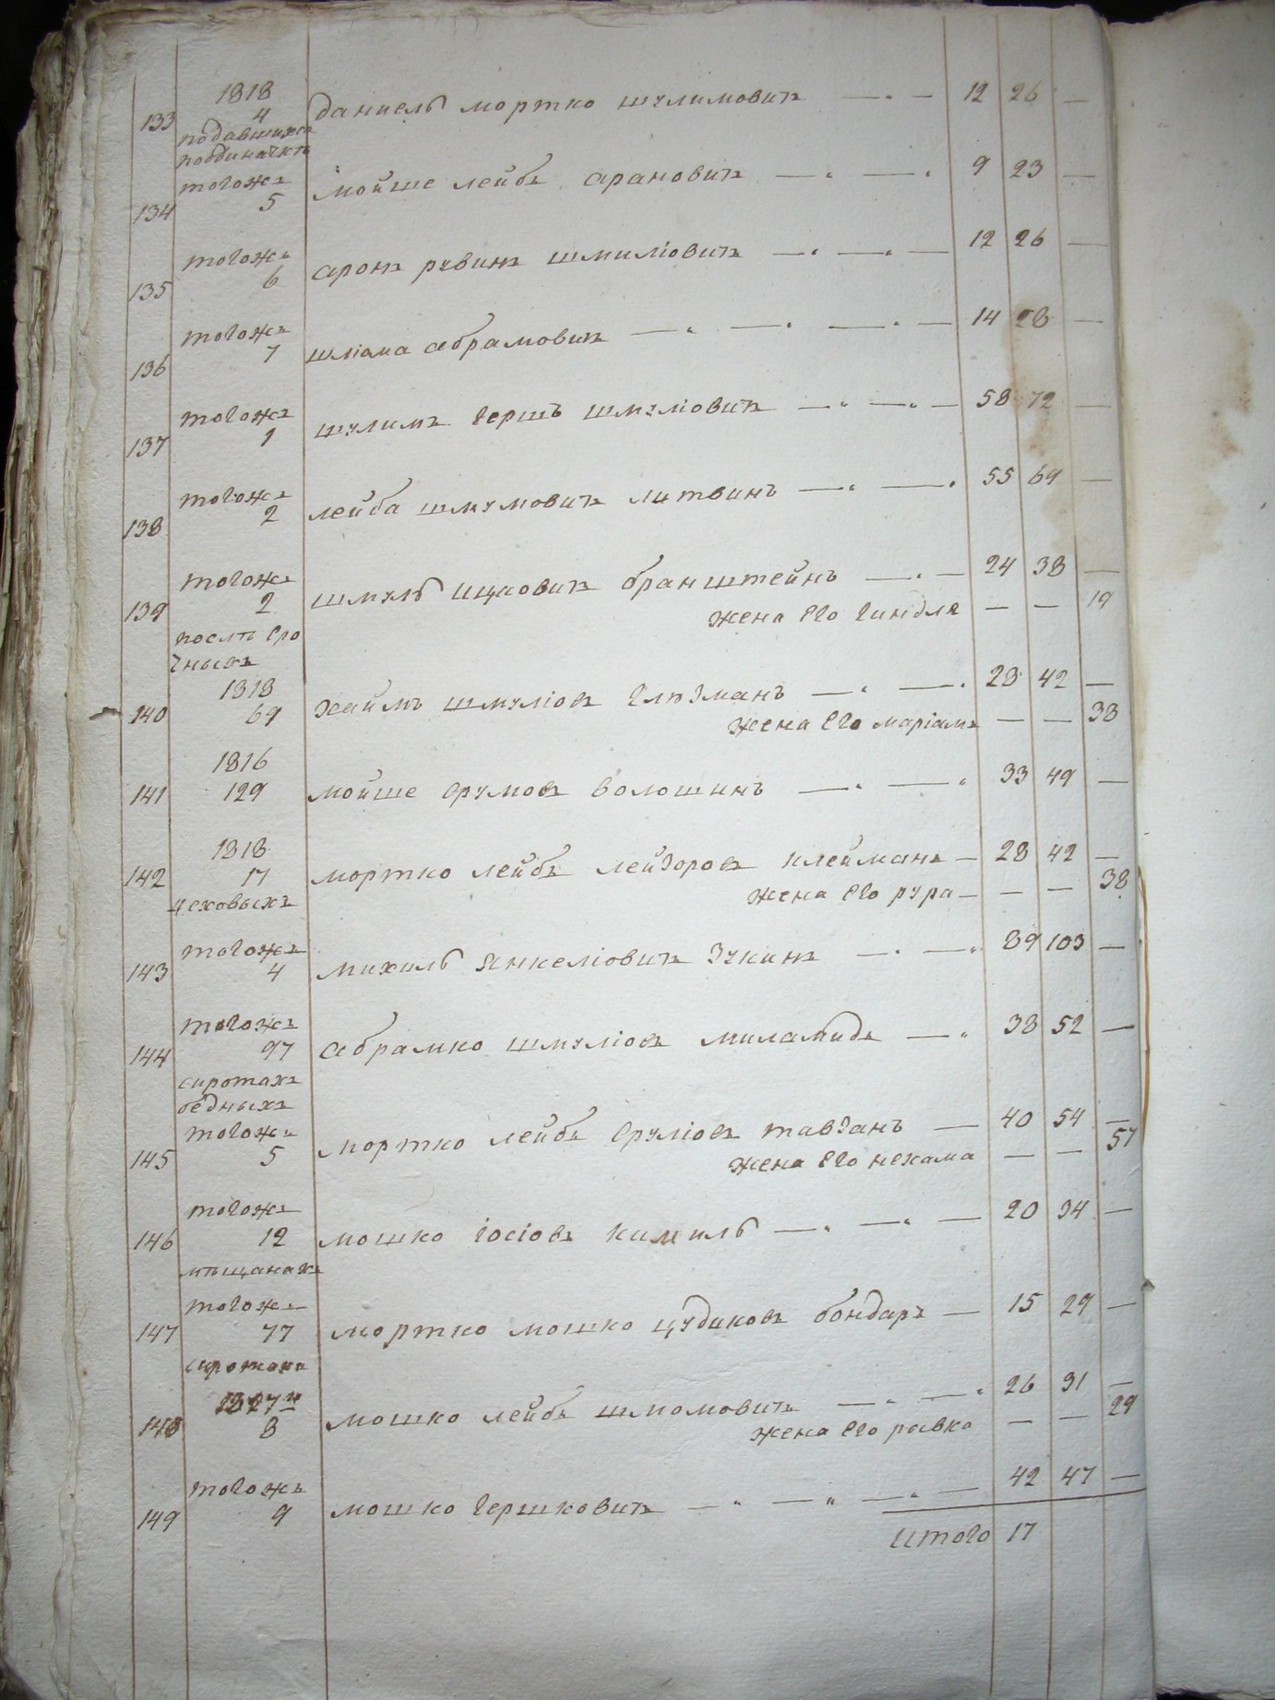 1818
133 4 даниель мортко шулимовичъ 12 26
подавшихся
поодиначкѣ
тогожъ
134 5 мойше лейбъ арановичъ 9 23
тогожъ
135 6 аронъ рувинъ шмиліовичъ 12 26
тогожъ
136 7 шліома абрамовичъ 14 28
тогожъ
137 1 шулимъ гершъ шмуліовичъ 58 72
тогожъ
138 2 лейба шмумовичъ литвинъ 55 69
тогожъ
139 2 шмуль ицковичъ бранштейнъ 24 38
жена его гиндля 19
послѣ сро
чныхъ
1818
140 69 хаимъ шмуліовъ глюзманъ 28 42
жена его маріамъ 38
1816
141 129 мойше срумовъ волошинъ 33 49
1818
142 17 мортко лейбъ лейзоровъ клейманъ 28 42
жена его рура 38
цеховыхъ
тогожъ
143 4 михиль янкеліовичъ зукинъ 89 103
тогожъ
144 97 абрамко шмуліовъ миламидъ 38 52
сиротахъ
бедныхъ
тогожъ
145 5 мортко лейбъ сруліовъ тавзанъ 40 54
жена его нехама 57
тогожъ
146 12 мошко іосіовъ кимиль 20 34
мѣщанахъ
тогожъ
147 77 мортко мошко цудиковъ бондаръ 15 29
1827
148 8 мошко лейбъ шмомовичъ 26 31
жена его ривка 29
тогожъ
149 9 мошко гершковичъ 42 47
итого 17